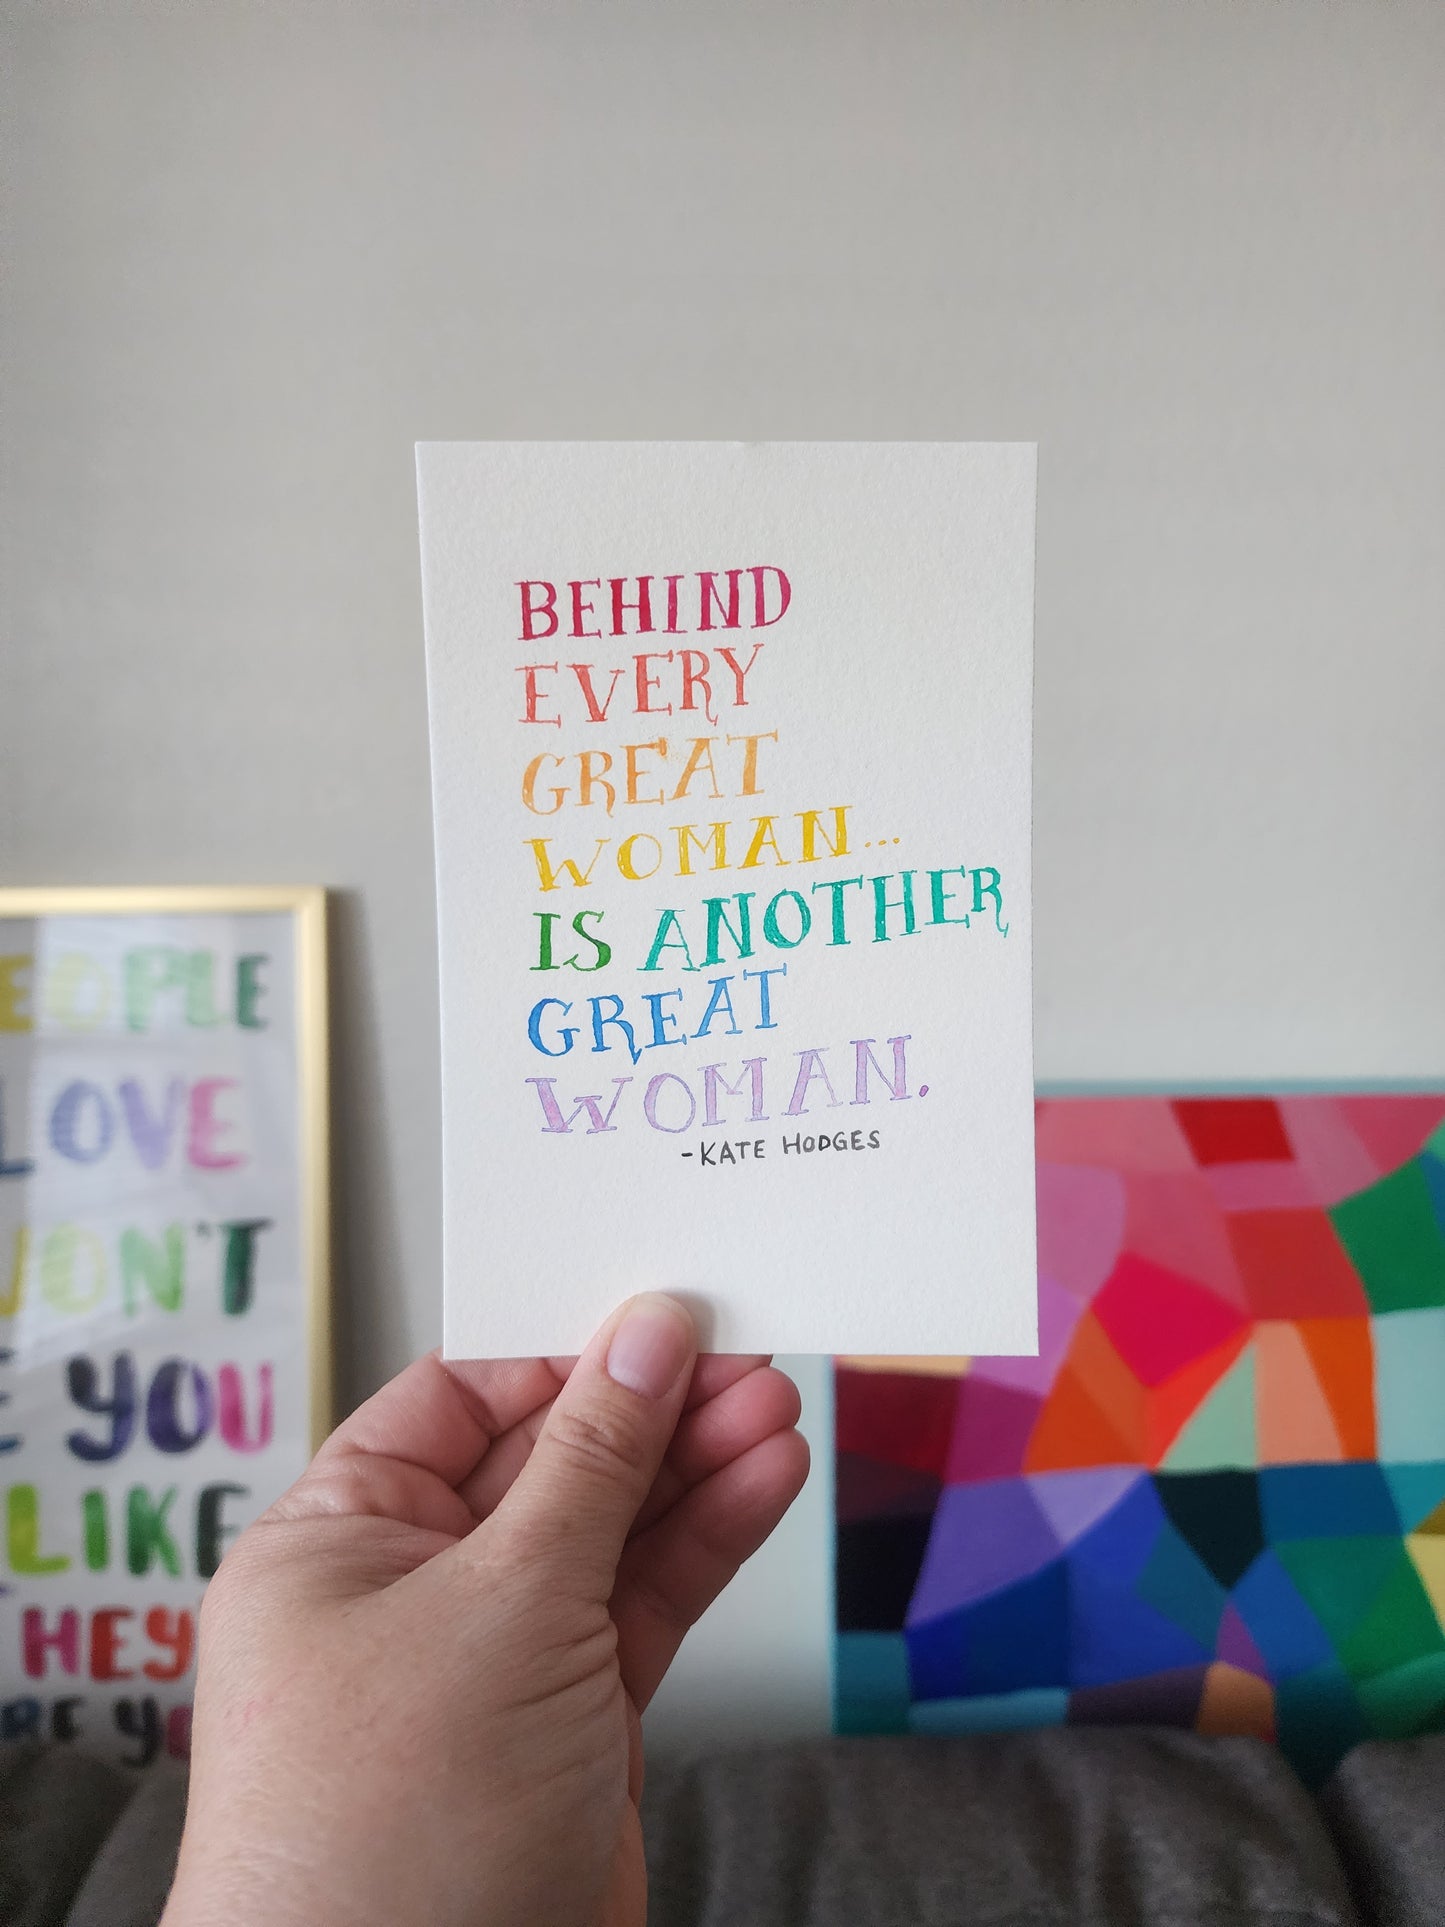 BEHIND
EVERY
GREAT
WOMAN...
IS ANOTHER
GREAT
WOMAN.
-KATE HODGES
LOVE
YOU
LIKE
HEY